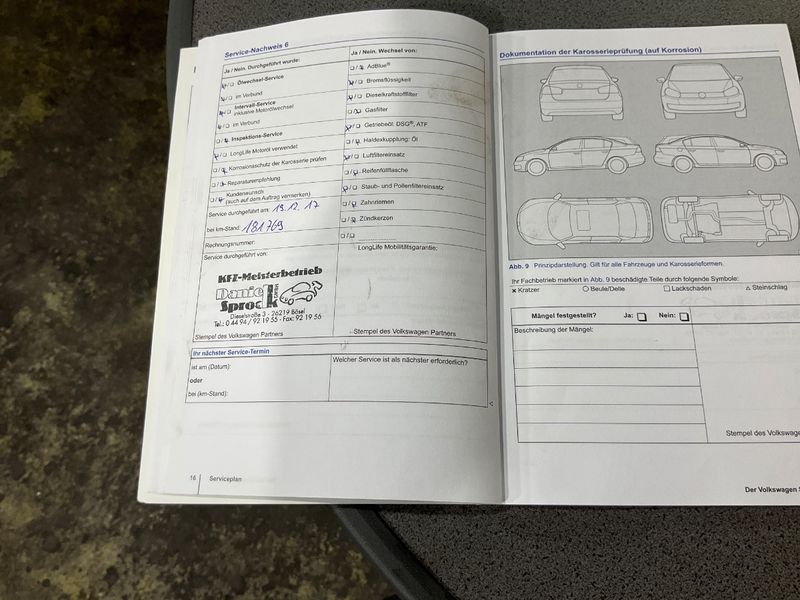 Service-Nachweis 6
Ja / Nein. Durchgeführt wurde:
Ölwechsel-Service
im Verbund
Intervall-Service
inklusive Motorölwechsel
im Verbund
Inspektions-Service
LongLife Motoröl verwendet
Korrosionsschutz der Karosserie prüfen
Reparaturempfehlung
Kundenwunsch
(auch auf dem Auftrag vermerken)
Service durchgeführt am: 19.12.17
bei km-Stand: 181769
Rechnungsnummer:
Service durchgeführt von:
KFZ-Meisterbetrieb
Daniel
Sprock
GmbH
Dieselstraße 3 - 26219 Bösel
Tel.: 0 44 94 / 92 19 55 · Fax: 92 19 56
Stempel des Volkswagen Partners
Ja / Nein. Wechsel von:
AdBlue®
Bremsflüssigkeit
Dieselkraftstofffilter
Gasfilter
Getriebeöl: DSG®, ATF
Haldexkupplung: Öl
Luftfiltereinsatz
Reifenfüllflasche
Staub- und Pollenfiltereinsatz
Zahnriemen
Zündkerzen
LongLife Mobilitätsgarantie:
Stempel des Volkswagen Partners
Ihr nächster Service-Termin
ist am (Datum):
oder
bei (km-Stand):
Welcher Service ist als nächster erforderlich?
16
Serviceplan
Dokumentation der Karosserieprüfung (auf Korrosion)
Abb. 9 Prinzipdarstellung. Gilt für alle Fahrzeuge und Karosserieformen.
Ihr Fachbetrieb markiert in Abb. 9 beschädigte Teile durch folgende Symbole:
× Kratzer ○ Beule/Delle □ Lackschaden △ Steinschlag
Mängel festgestellt? Ja: Nein:
Beschreibung der Mängel:
Stempel des Volkswage
Der Volkswagen S